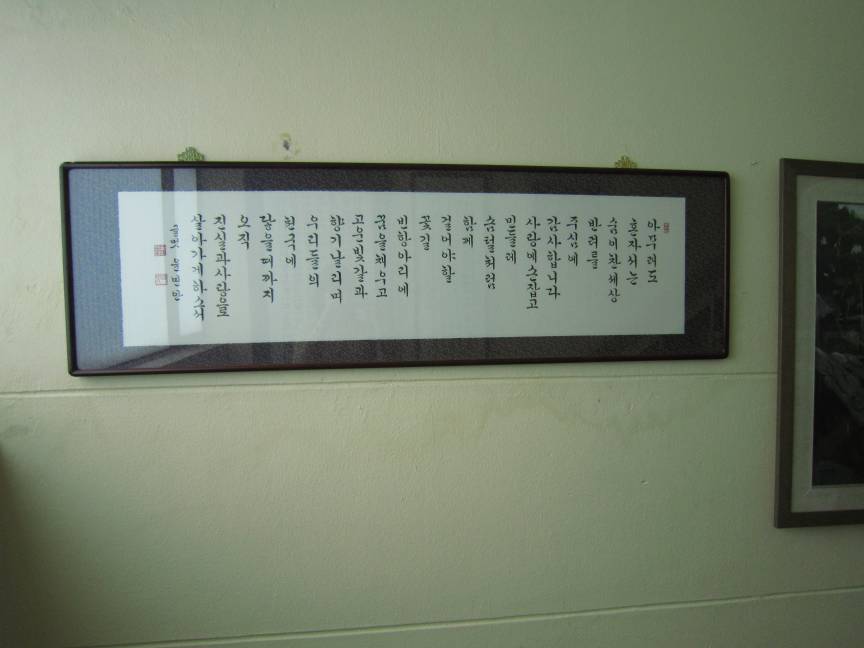 아무래도
혼자서는
숨이찬세상
반려를
주심에
감사합니다
사랑에손잡고
민들레
솜털처럼
함께
걸어야할
꽃길
빈항아리에
꿈을채우고
고운빛깔과
향기날리며
우리들의
천국에
닿을때까지
오직
진실과사랑으로
살아가게하소서